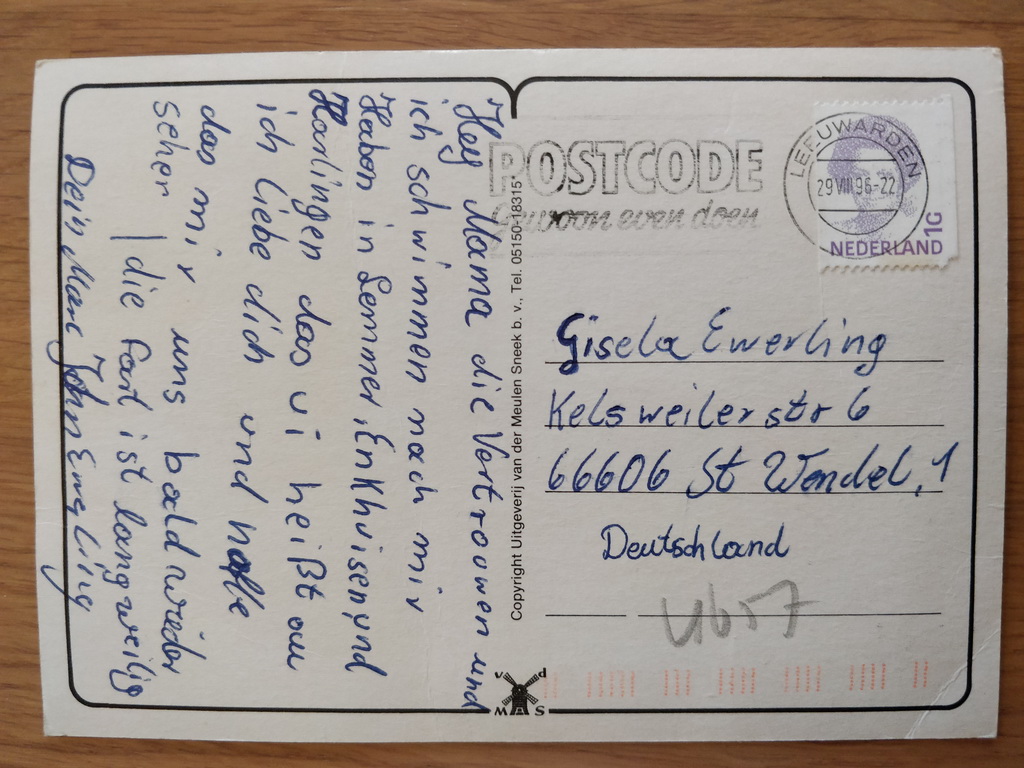 Hey Mama die Vertrowen und
ich schwimmen nach mir
Habon in Lemmer, Enkhuisen und
Harlingen das wi heißt am
ich liebe dich und hoffe
das mir uns bald wieder
sehen | die fart ist langweilig
Dein Marc John Ewerling
Copyright Uitgeverij van der Meulen Sneek b.v., Tel. 05150-18315*
v d
MAS
POSTCODE
Gewoon even doen
LEEUWARDEN
29 VIII 96-22
NEDERLAND
1G
Gisela Ewerling
Kelsweilerstr 6
66606 St Wendel, 1
Deutschland
4657